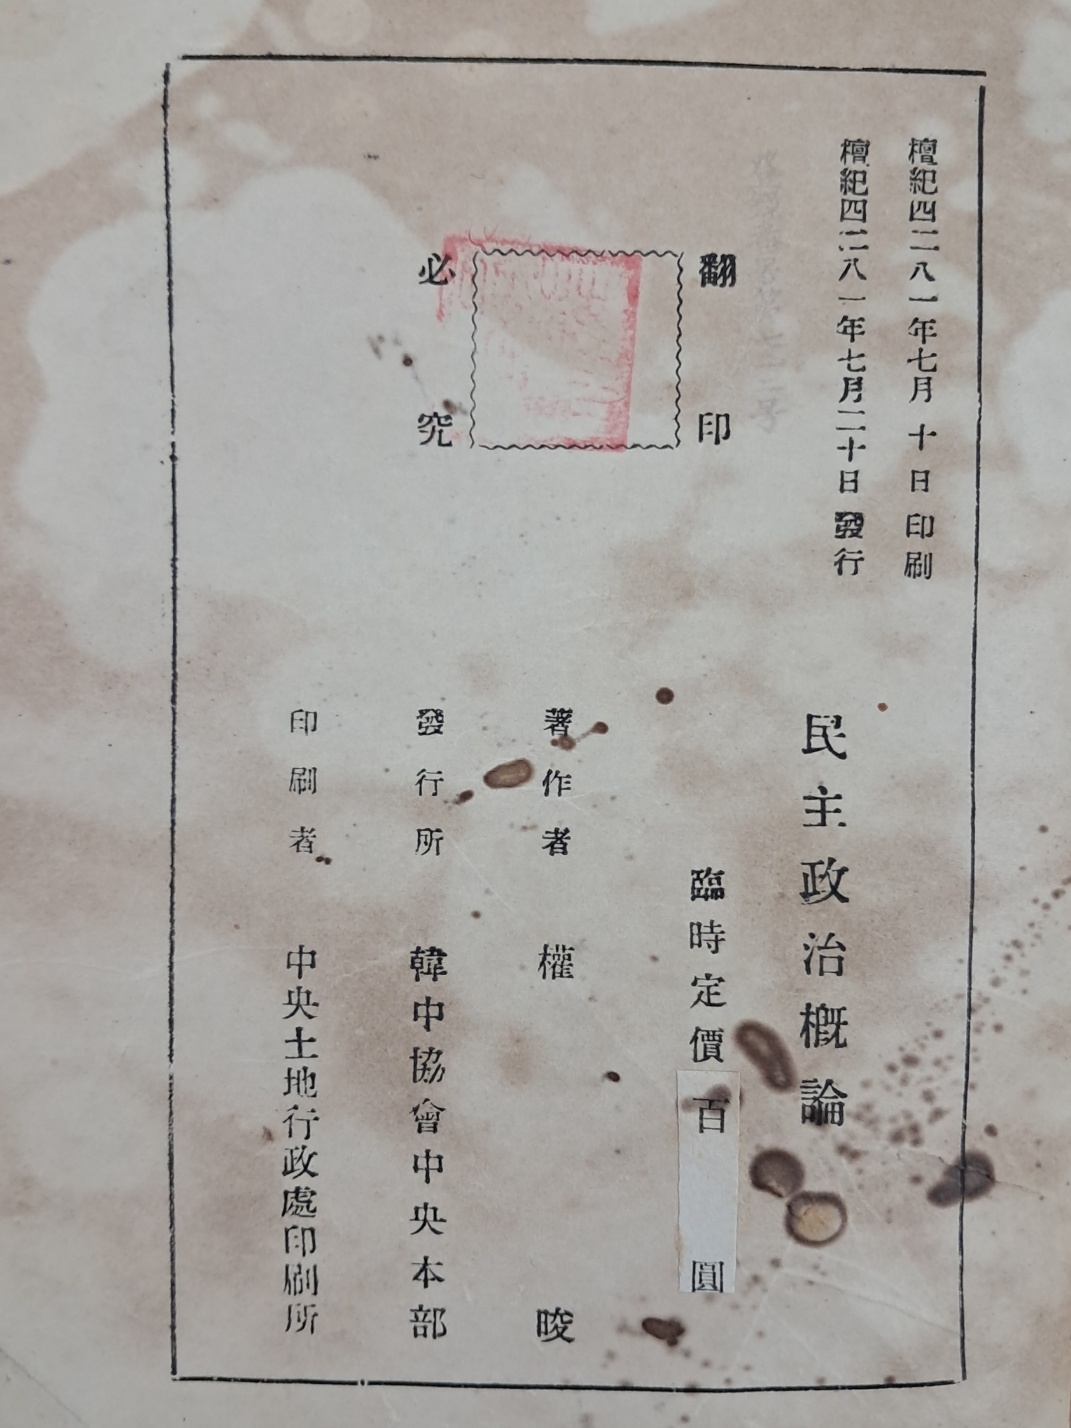 檀紀四二八一年七月十日印刷
檀紀四二八一年七月二十日發行
翻印
必究
民主政治概論
臨時定價百圓
著作者 權 晙
發行所 韓中協會中央本部
印刷者 中央土地行政處印刷所